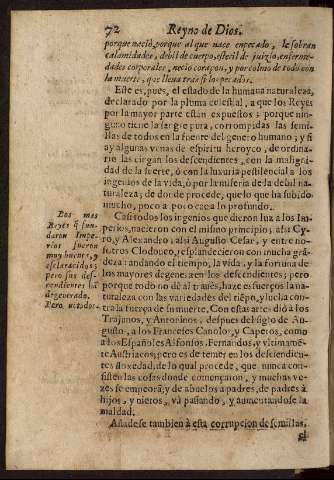 72 Reyno de Dios.
porque naciò, porque al que nace enpecado, le sobran
calamidades, debil de cuerpo, esteril de juizio, enferme-
dades corporales, necio coraçon, y por colmo de todo con
la muerte, que lleva tras sì los pecados.
Este es, pues, el estado de la humana naturaleza,
declarado por la pluma celestial, a que los Reyes
por la mayor parte estàn expuestos; porque nin-
guno tiene la sangre pura, corrompidas las semi-
llas de todos en la fuente del genero humano; y si
ay algunas venas de espiritu heroyco, de ordina-
rio las ciegan los descendientes, con la maligni-
dad de la suerte, ò con la luxuria pestilencial a los
ingenios de la vida, ò por la miseria de la debil na-
turaleza; de donde procede, que lo que ha subido
mucho, poco a poco caea lo profundo.
Dos mos
Reyes q̃ fun-
daron Impe-
rios fueron
muy buenos, y
esclarecidos;
pero sus des-
cendientes hã
degenerado.
Pero no todos.
Casi todos los ingenios que dieron luz a los Im-
perios, nacieron con el mismo principio; assi Cy-
ro, y Alexandro; assi Augusto Cesar, y entre no-
sotros Clodoveo, resplandecieron con mucha grã-
deza: andando el tiempo, la vida, y la fortuna de
los mayores degeneraen los descendientes; pero
porque todo no dè al travès, haze esfuerços la na-
turaleza con las variedades del tiẽpo, y lucha con-
tra la fuerça de su muerte. Con estas artes diò a los
Trajanos, y Antoninos, despues del siglo de Au-
gusto, a los Franceses Carolos, y Capetos, como
a los Españoles Alfonsos, Fernandos, y vltimamẽ-
te Austriacos; pero es de temer en los descendien-
tes floxedad, de lo qual procede, que nunca con-
sisten las cosas donde començaron, y muchas ve-
zes se empeora; y de abuelos a padres, de padres à
hijos, y nietos, và passando, y aumentandose la
maldad.
Añadese tambien à esta corrupcion de semillas,
el